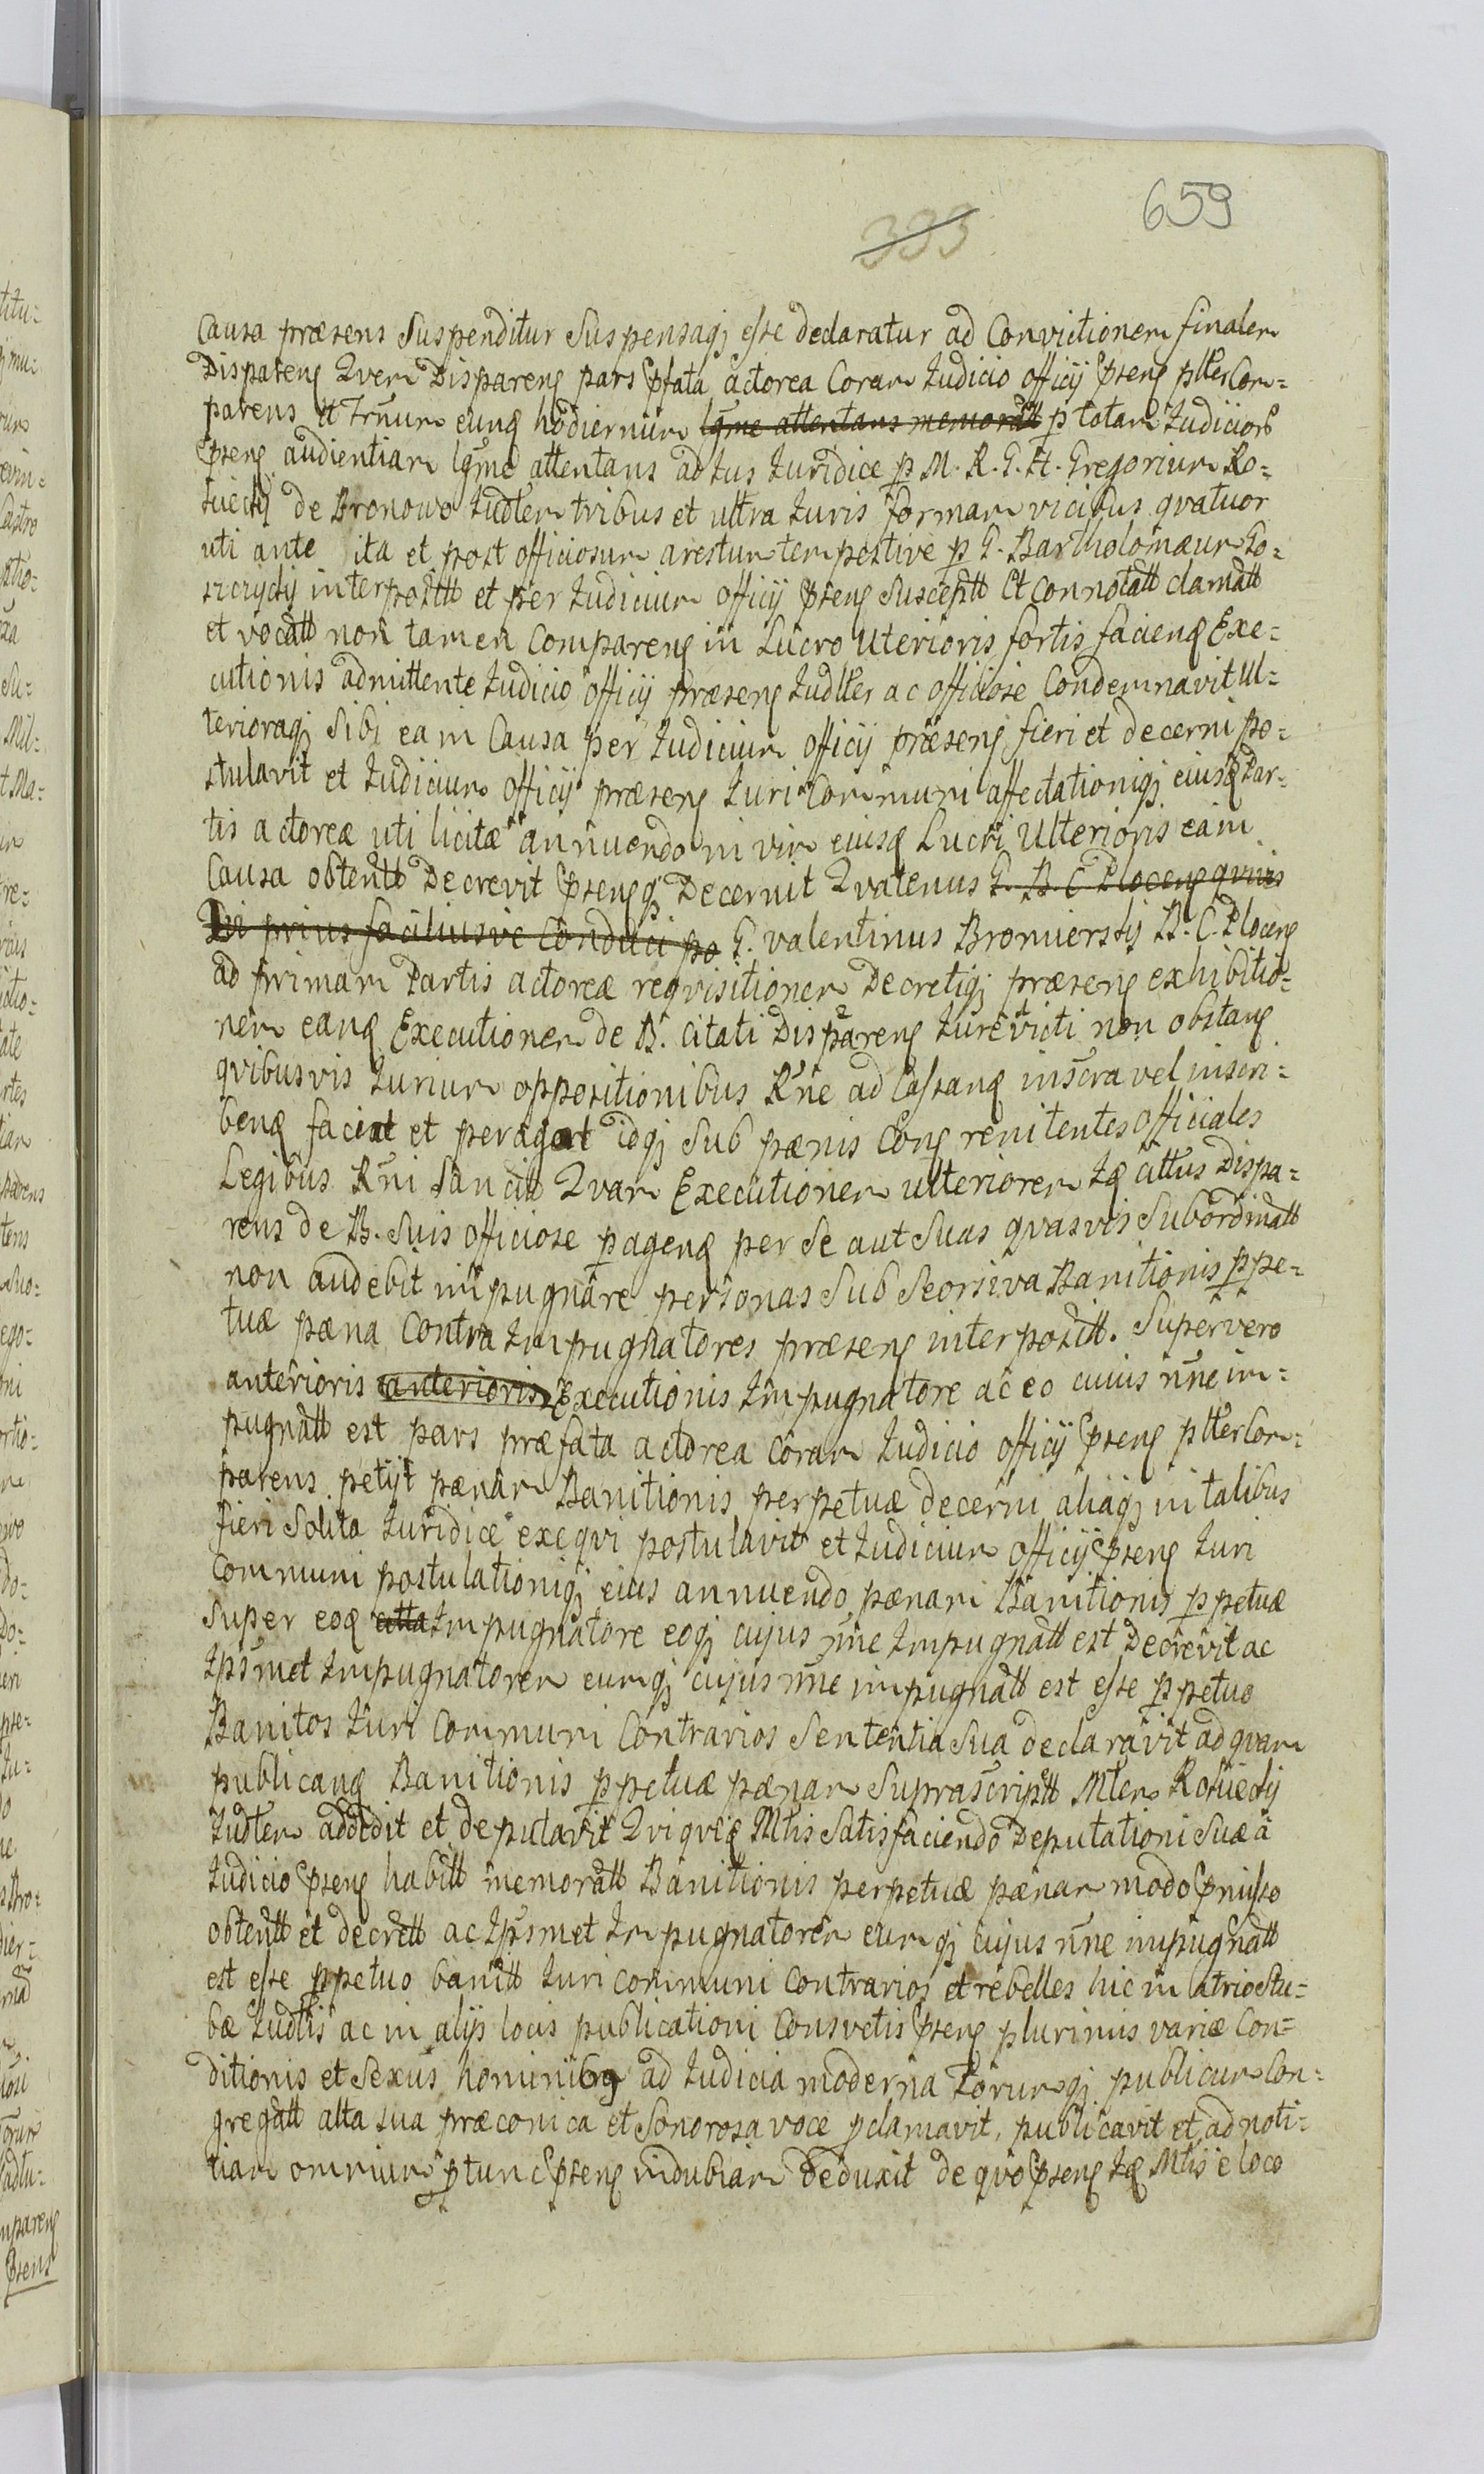 659
393
Causa præsens Suspenditur Suspensaqȝ esse declaratur ad Convictionem finalem
Disparenꝭ Quem Disparenꝭ pars Pfata actorea Coram Iudicio officij Pśenꝭ pltter Com=
parens et Trńum eunꝭ hodiernum lg̃me attentans memoratt p totam Iudicior
Pśenꝭ audientiam lg̃me attentans actus Iuridice p M. R. G. H. Gregorium Ro=
de Bronowo Iudlem tribus et ultra Iuris formam vicibus qvatuor
uti ante ita et post officiosum arestum tempestive p G. Bartholomæum Go=
interpositt et per Iudicium officij Pśenꝭ Susceptt et Connotatt clamatt
et vocatt non tamen Comparenꝭ in Lucro Uterioris fortis facienꝭ Exe=
cutionis admittente Iudicio officij præsenꝭ Iudlter ac officiose Condemnavit Ul=
terioraqȝ Sibi ea in Causa per Iudicium officij præsenꝭ fieri et decerni po=
stulavit et Iudicium officij præsenꝭ Iuri Communi affectationiqȝ eiusꝭ Par=
tis actoreæ uti licitæ annuendo in vim eiusꝭ Lucri Ulterioris ea in
Causa obtentt Decrevit Pśenqȝ Decernit Qvatenus G. B. C. Plocenꝭ qvivis
Ibi prius faciliusve Conduci po G. Valentinus Bromierskij B. C. Plocenꝭ
ad primam Partis actoreæ reqvisitionem Decretiqȝ præsenꝭ exhibitio=
nem eanꝭ Executionem de B. citati Disparenꝭ Iure victi non obstanꝭ
qvibusvis Iurium oppositionibus Rńe ad Cassanꝭ inscra vel inscri=
benꝭ faciat et peragat idqȝ Sub pœnis Conꝭ renitentes officiales
Legibus Rńi Sancitt Qvam Executionem ulteriorem Iꝭ cittus Dispa=
rens de B. Suis officiose pagenꝭ per Se aut Suas qvasvis Subordinatt
non audebit impugnare personas Sub Seorsiva Banitionis ppe=
tuæ pœna Contra Impugnatores præsenꝭ interpositt. Super vero
anterioris anterioris Executionis Impugnatore ac eo cuius ńne im=
pugnatt est pars præfata actorea coram Iudicio officij Pśenꝭ pltter Com=
parens petijt pœnam Banitionis perpetuæ decerni aliaqȝ in talibus
fieri Solita Iuridice exeqvi postulavit et Iudicium officij Pśenꝭ Iuri
Communi postulationiqȝ eius annuendo pœnam Banitionis ppetuæ
Super eoꝭ Impugnatore eoqȝ cujus ńne Impugnatt est Decrevit ac
Ipśmet Impugnatorem eumqȝ cujus ńne impugnatt est esse ppetuo
Banitos Iuri Communi Contrarios Sententia Sua declaravit ad qvam
publicanꝭ Banitionis ppetuæ pœnam Suprascriptt Mlem
Iudlem addidit et deputavit Qviqvidꝭ Mlis Satisfaciendo Deputationi Suæ à
Iudicio Pśenꝭ habitt memoratt Banitionis perpetuæ pœnam modo Pmisso
obtentt et decrett ac Ipśmet Impugnatorem eumqȝ cujus ńne impugnatt
est esse ppetuo banitt Iuri communi Contrarios et rebelles hic in atrio Stu=
bæ Iudlis ac in alijs locis publicationi Consvetis Pśenꝭ plurimis variæ Con=
ditionis et Sexus hominibꝭ ad Iudicia moderna Forumqȝ publicum Con=
gregatt alta sua præconica et Sonorosa voce pclamavit, publicavit et ad noti=
tiam omnium ptunc Pśenꝭ indubiam deduxit de qvo Pśenꝭ Iꝭ Mlis è loco